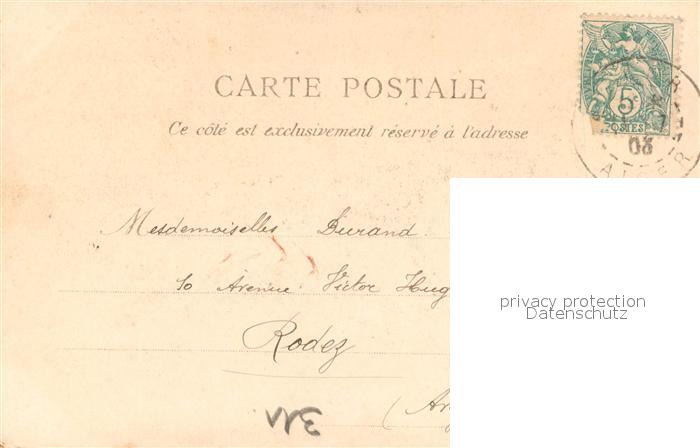 CARTE POSTALE
Ce côté est exclusivement réservé à l'adresse
5c
POSTES
03
Mesdemoiselles Durand
10 Avenue Victor Hug
Rodez
privacy protection
Datenschutz